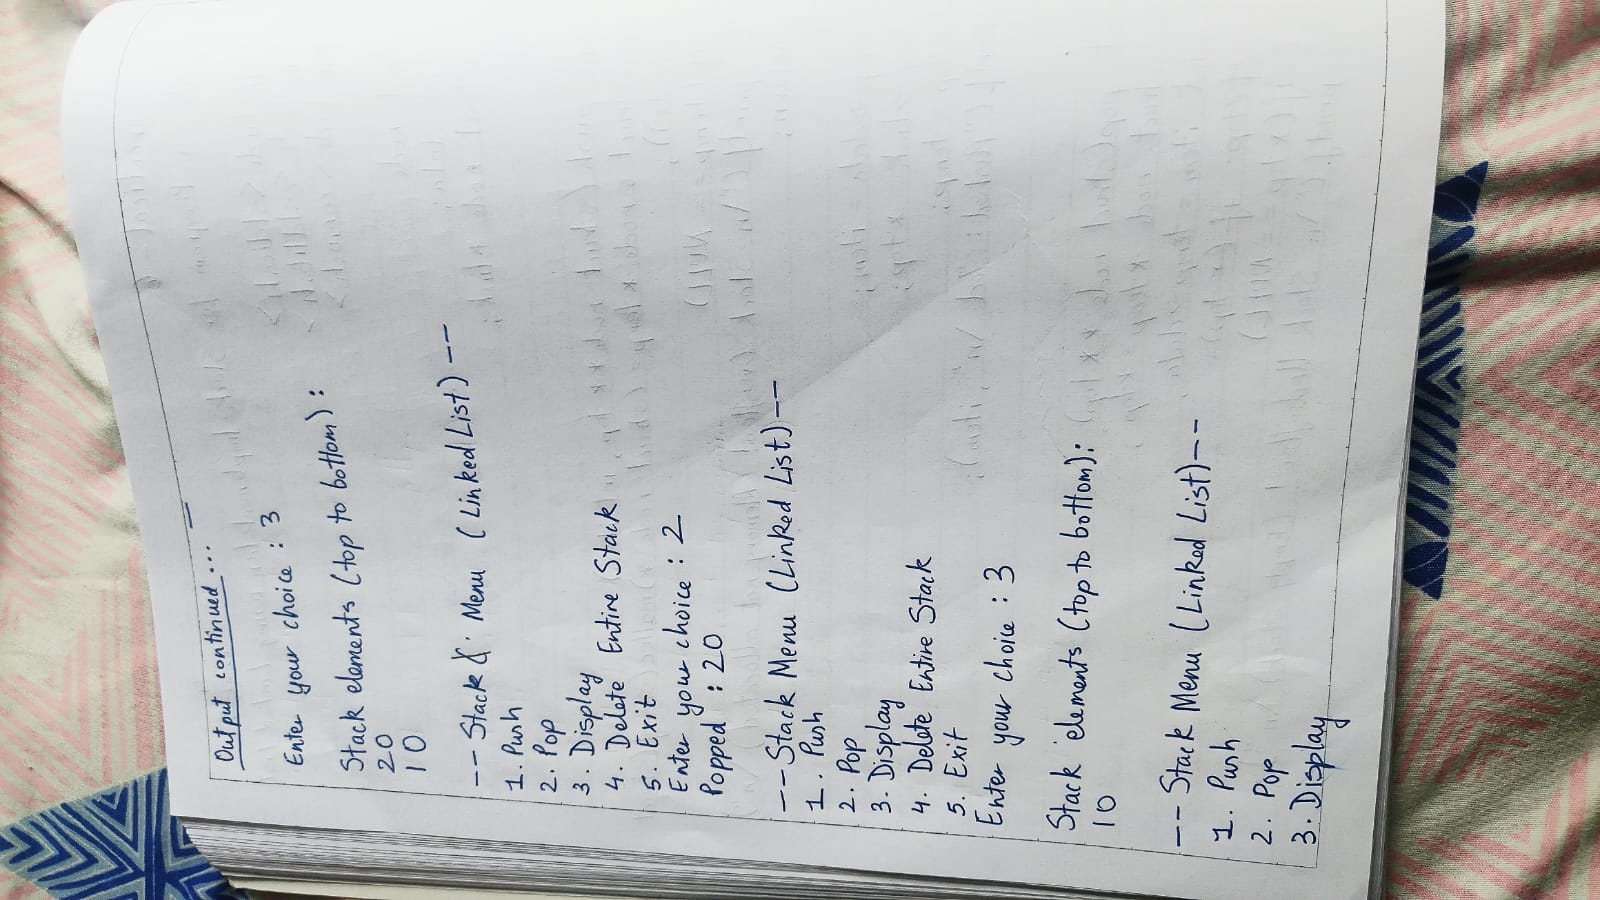 Output continued...
Enter your choice : 3
Stack elements (top to bottom) :
20
10
-- Stack Menu (Linked List) --
1. Push
2. Pop
3. Display
4. Delete Entire Stack
5. Exit
Enter your choice : 2
Popped : 20
-- Stack Menu (Linked List) --
1. Push
2. Pop
3. Display
4. Delete Entire Stack
5. Exit
Enter your choice : 3
Stack elements (top to bottom):
10
-- Stack Menu (Linked List) --
1. Push
2. Pop
3. Display